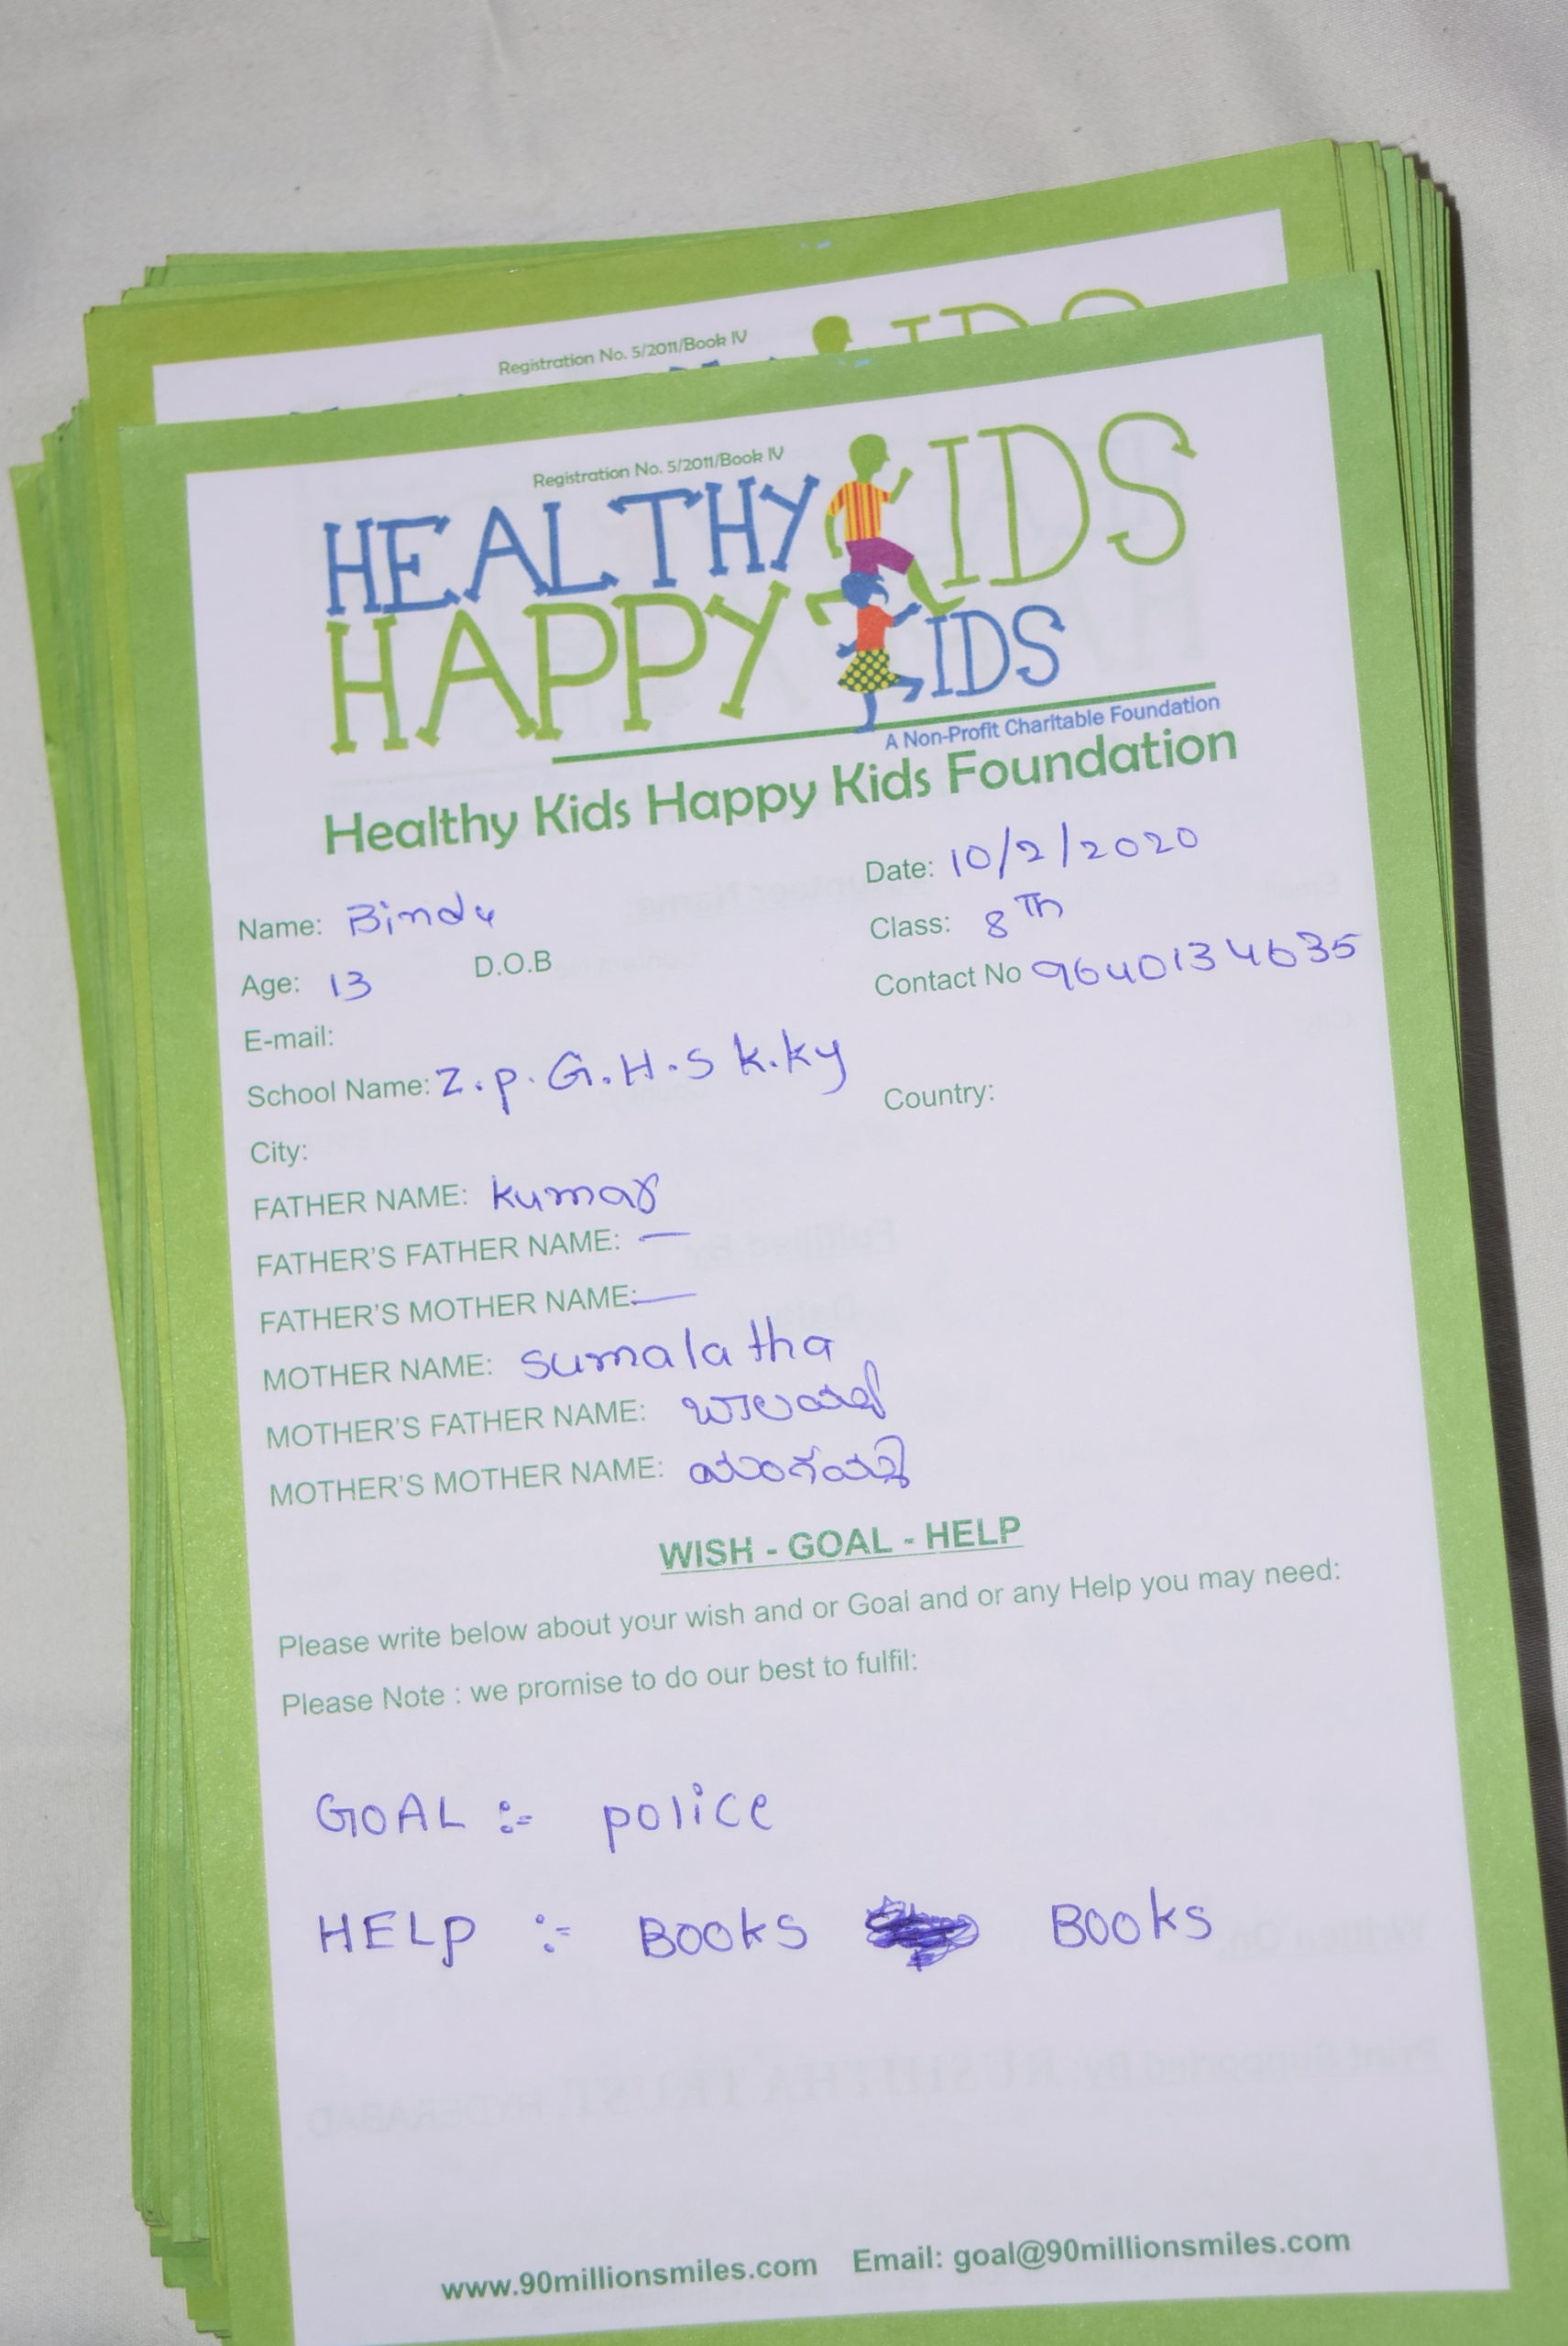 Registration No. 5/2011/Book IV
Registration No. 5/2011/Book IV
HEALTHY KIDS
HAPPY KIDS
A Non-Profit Charitable Foundation
Healthy Kids Happy Kids Foundation
Date: 10/2/2020
Name: Bindu
Class: 8 Th
Age: 13 D.O.B
Contact No 9640134635
E-mail:
School Name: Z.p.G.H.S K.ky
City: Country:
FATHER NAME: kumar
FATHER'S FATHER NAME: —
FATHER'S MOTHER NAME: —
MOTHER NAME: sumalatha
MOTHER'S FATHER NAME: బాలయ్య
MOTHER'S MOTHER NAME:
WISH - GOAL - HELP
Please write below about your wish and or Goal and or any Help you may need:
Please Note : we promise to do our best to fulfil:
GOAL :- police
HELP :- BOOKS BOOKS
www.90millionsmiles.com Email: goal@90millionsmiles.com